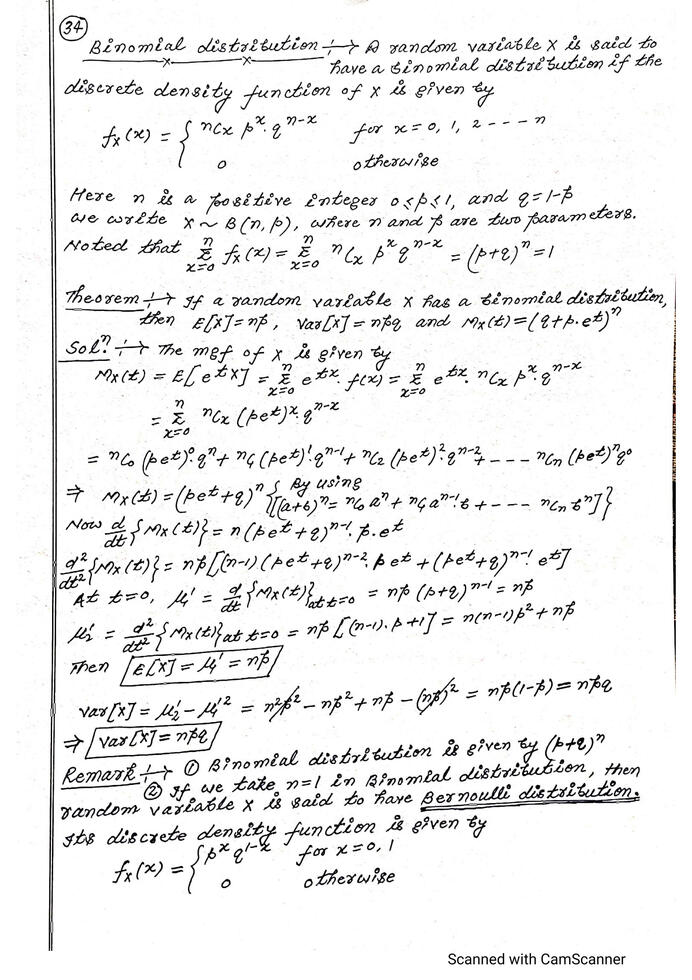 34
Binomial distribution :→ A random variable X is said to
have a binomial distribution if the
discrete density function of X is given by
f_X(x) = { nCx p^x. q^(n-x) for x = 0, 1, 2 ---- n
0 otherwise
Here n is a positive integer 0≤p≤1, and q=1-p
we write X ~ B(n, p), where n and p are two parameters.
Noted that Σ_(x=0)^n f_X(x) = Σ_(x=0)^n nCx p^x q^(n-x) = (p+q)^n = 1
Theorem :→ If a random variable X has a binomial distribution,
then E[X]=np, Var[X]=npq and M_X(t)=(q+p.e^t)^n
Sol^n. :→ The mgf of X is given by
M_X(t) = E[e^(tX)] = Σ_(x=0)^n e^(tx). f(x) = Σ_(x=0)^n e^(tx). nCx p^x. q^(n-x)
= Σ_(x=0)^n nCx (pe^t)^x. q^(n-x)
= nC0 (pe^t)^0. q^n + nC1 (pe^t)^1. q^(n-1) + nC2 (pe^t)^2. q^(n-2) + ---- nCn (pe^t)^n q^0
⇒ M_X(t) = (pe^t+q)^n { By using
[(a+b)^n = nC0 a^n + nC1 a^(n-1). b + ---- nCn b^n] }
Now d/dt {M_X(t)} = n(pe^t+q)^(n-1). p.e^t
d²/dt² {M_X(t)} = np[(n-1)(pe^t+q)^(n-2). pe^t + (pe^t+q)^(n-1). e^t]
At t=0, μ1' = d/dt {M_X(t)} at t=0 = np (p+q)^(n-1) = np
μ2' = d²/dt² {M_X(t)} at t=0 = np [(n-1).p+1] = n(n-1)p² + np
Then E[X] = μ1' = np
Var[X] = μ2' - μ1'² = n²p² - np² + np - (np)² = np(1-p) = npq
⇒ Var[X] = npq
Remark :→ ① Binomial distribution is given by (p+q)^n
② If we take n=1 in Binomial distribution, then
random variable X is said to have Bernoulli distribution.
Its discrete density function is given by
f_X(x) = { p^x q^(1-x) for x = 0, 1
0 otherwise
Scanned with CamScanner